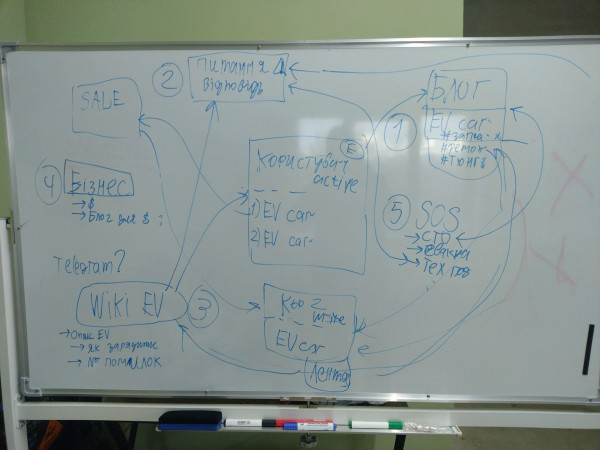 2
Питання
відповідь
SALE
Блог
1
EV car
#ТЮНГ
E
Користувач
active
1) EV car
2) EV car
4
Бізнес
→ $
→ Блог для $
5
SOS
→ СТО
→ Евакуа
→ Тех
Telegram?
Wiki EV
3
→ Опис EV
→ як зарядити
→ № помилок
2
EV car
Лента